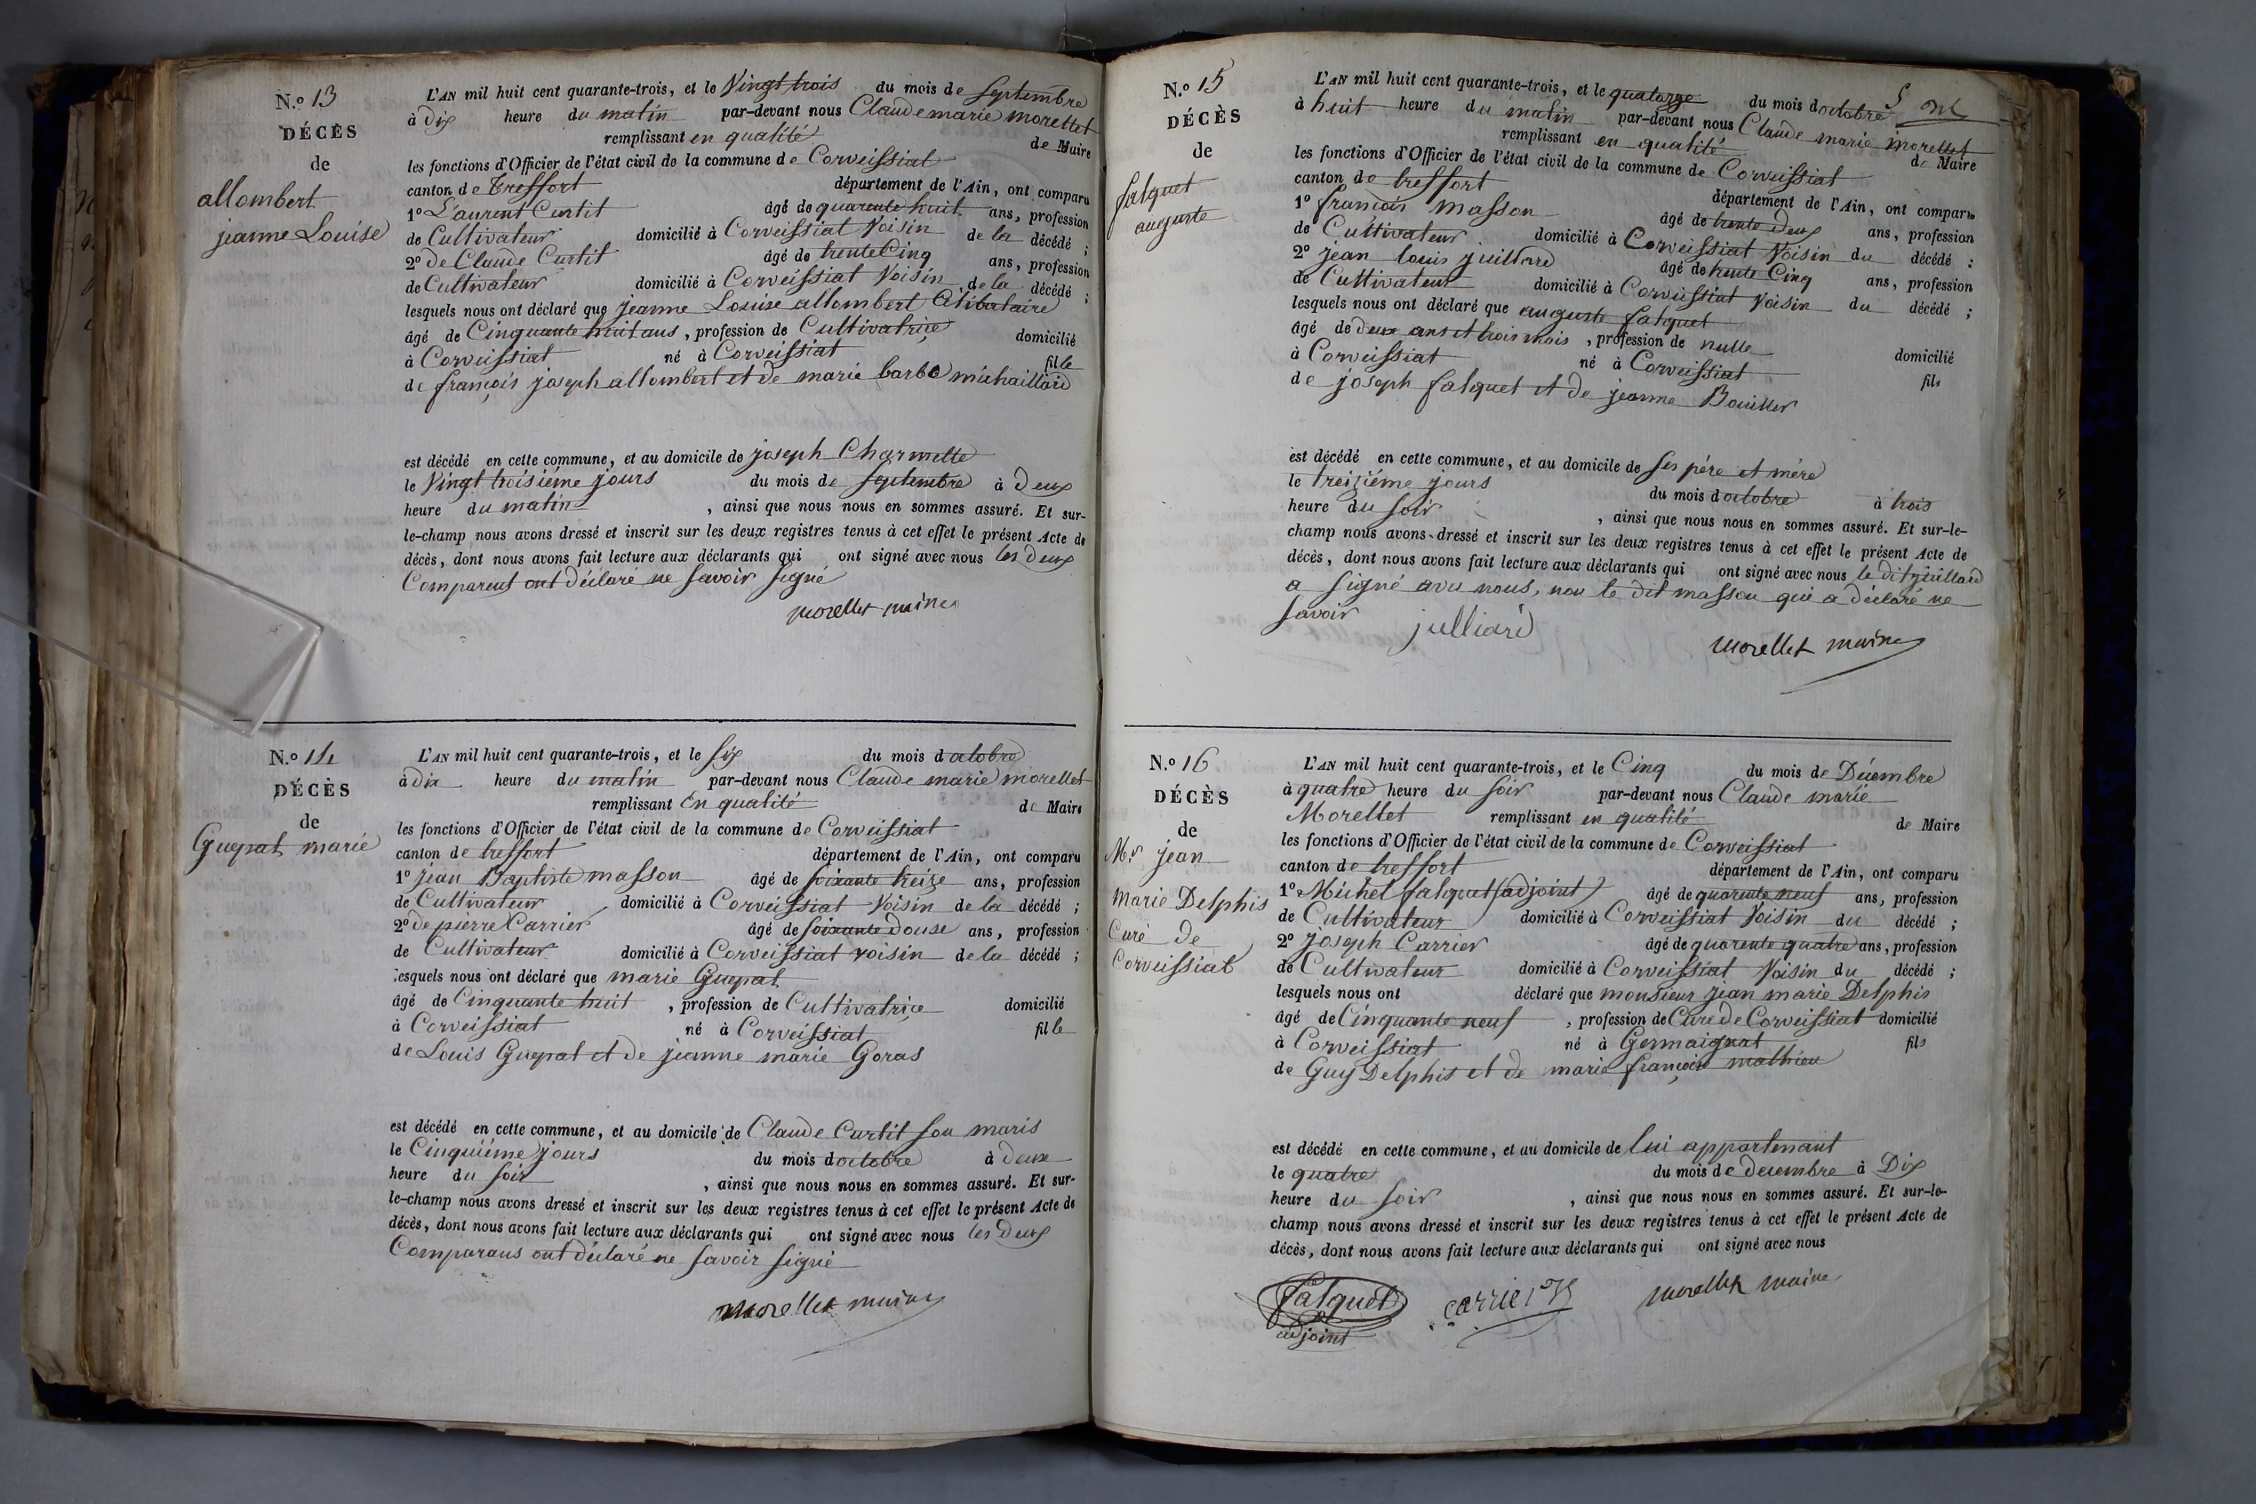 N.º 13
DÉCÈS
de
allombert
jeanne Louise
L'AN mil huit cent quarante-trois, et le Vingt trois du mois de Septembre
à dix heure du matin par-devant nous Claude marie morellet
remplissant en qualité de Maire
les fonctions d'Officier de l'état civil de la commune de Corveissiat
canton de treffort département de l'Ain, ont comparu
1º Laurent Curtit âgé de quarente huit ans, profession
de Cultivateur domicilié à Corveissiat Voisin de la décédé ;
2º de Claude Curtit âgé de trente Cinq ans, profession
de Cultivateur domicilié à Corveissiat Voisin de la décédé ;
lesquels nous ont déclaré que jeanne Louise allombert Célibataire
âgé de Cinquante huit ans, profession de Cultivatrice domicilié
à Corveissiat né à Corveissiat fille
de françois joseph allombert et de marie barbe michaillard
est décédé en cette commune, et au domicile de joseph Charmette
le Vingt troisiéme jours du mois de Septembre à deux
heure du matin , ainsi que nous nous en sommes assuré. Et sur-
le-champ nous avons dressé et inscrit sur les deux registres tenus à cet effet le présent Acte de
décès, dont nous avons fait lecture aux déclarants qui ont signé avec nous les deux
Comparent ont déclaré ne Savoir Signé
morellet maire
N.º 14
DÉCÈS
de
Guepat marie
L'AN mil huit cent quarante-trois, et le Six du mois d octobre
à dix heure du matin par-devant nous Claude marie morellet
remplissant En qualité de Maire
les fonctions d'Officier de l'état civil de la commune de Corveissiat
canton de treffort département de l'Ain, ont comparu
1º jean Baptiste masson âgé de soixante treize ans, profession
de Cultivateur domicilié à Corveissiat Voisin de la décédé ;
2º de pierre Carrier âgé de soixante douse ans, profession
de Cultivateur domicilié à Corveissiat voisin de la décédé ;
lesquels nous ont déclaré que marie Guepat
âgé de Cinquante huit , profession de Cultivatrice domicilié
à Corveissiat né à Corveissiat fille
de Louis Guepat et de jeanne marie Goras
est décédé en cette commune, et au domicile de Claude Curtit son maris
le Cinquiéme jours du mois d octobre à deux
heure du soir , ainsi que nous nous en sommes assuré. Et sur-
le-champ nous avons dressé et inscrit sur les deux registres tenus à cet effet le présent Acte de
décès, dont nous avons fait lecture aux déclarants qui ont signé avec nous les deux
Comparans ont déclaré ne Savoir Signé
morellet maire
N.º 15
DÉCÈS
de
falquet
auguste
L'AN mil huit cent quarante-trois, et le quatorze du mois d octobre
à huit heure du matin par-devant nous Claude marie morellet
remplissant en qualité de Maire
les fonctions d'Officier de l'état civil de la commune de Corveissiat
canton de treffort département de l'Ain, ont comparu
1º françois masson âgé de trente deux ans, profession
de Cultivateur domicilié à Corveissiat Voisin du décédé ;
2º jean louis juillard âgé de trente Cinq ans, profession
de Cultivateur domicilié à Corveissiat Voisin du décédé ;
lesquels nous ont déclaré que auguste falquet
âgé de deux ans et trois mois , profession de nulle domicilié
à Corveissiat né à Corveissiat fils
de joseph falquet et de jeanne Bouiller
est décédé en cette commune, et au domicile de ses pére et mére
le treiziéme jours du mois d octobre à trois
heure du soir , ainsi que nous nous en sommes assuré. Et sur-le-
champ nous avons dressé et inscrit sur les deux registres tenus à cet effet le présent Acte de
décès, dont nous avons fait lecture aux déclarants qui ont signé avec nous le dit juillard
a signé avec nous, non le dit masson qui a déclaré ne
Savoir julliard
morellet maire
N.º 16
DÉCÈS
de
Mr jean
Marie Delphis
Curé de
Corveissiat
L'AN mil huit cent quarante-trois, et le Cinq du mois de Décembre
à quatre heure du soir par-devant nous Claude marie
Morellet remplissant en qualité de Maire
les fonctions d'Officier de l'état civil de la commune de Corveissiat
canton de treffort département de l'Ain, ont comparu
1º Michel falquet (adjoint) âgé de quarente neuf ans, profession
de Cultivateur domicilié à Corveissiat Voisin du décédé ;
2º joseph Carrier âgé de quarente quatre ans, profession
de Cultivateur domicilié à Corveissiat Voisin du décédé ;
lesquels nous ont déclaré que monsieur jean marie Delphis
âgé de Cinquante neuf , profession de Curé de Corveissiat domicilié
à Corveissiat né à Germaignat fils
de Guy Delphis et de marie françois mathieu
est décédé en cette commune, et au domicile de lui appartenant
le quatre du mois de decembre à Dix
heure du soir , ainsi que nous nous en sommes assuré. Et sur-le-
champ nous avons dressé et inscrit sur les deux registres tenus à cet effet le présent Acte de
décès, dont nous avons fait lecture aux déclarants qui ont signé avec nous
falquet carrier morellet maire
adjoint